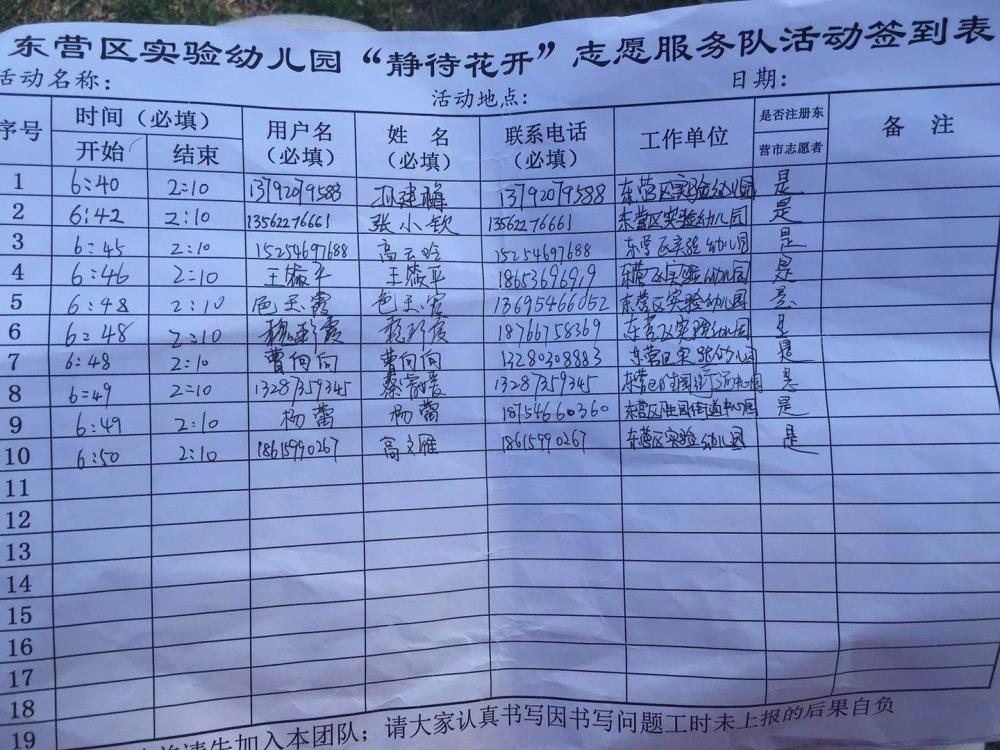 东营区实验幼儿园“静待花开”志愿服务队活动签到表
活动名称： 活动地点： 日期：
序号 时间（必填） 用户名（必填） 姓名（必填） 联系电话（必填） 工作单位 是否注册东营市志愿者 备注
开始 结束
1 6:40 2:10 13792079588 13792079588 东营区实验幼儿园 是
2 6:42 2:10 13562276661 张小钦 13562276661 东营区实验幼儿园 是
3 6:45 2:10 15254697688 高云哈 15254697688 东营区实验幼儿园 是
4 6:46 2:10 王 平 王 平 18653696919 东营区实验幼儿园 是
5 6:48 2:10 13695466052 东营区实验幼儿园 是
6 6:48 2:10 18766758369 东营区实验幼儿园 是
7 6:48 2:10 曹向向 曹向向 13280308883 东营区实验幼儿园 是
8 6:49 2:10 13287359345 13287359345 是
9 6:49 2:10 杨蕾 杨蕾 18754660360 东营区胜园街道中心园 是
10 6:50 2:10 18615990267 高文雁 18615990267 东营区实验幼儿园 是
11
12
13
14
15
16
17
18
19
请先加入本团队；请大家认真书写因书写问题工时未上报的后果自负